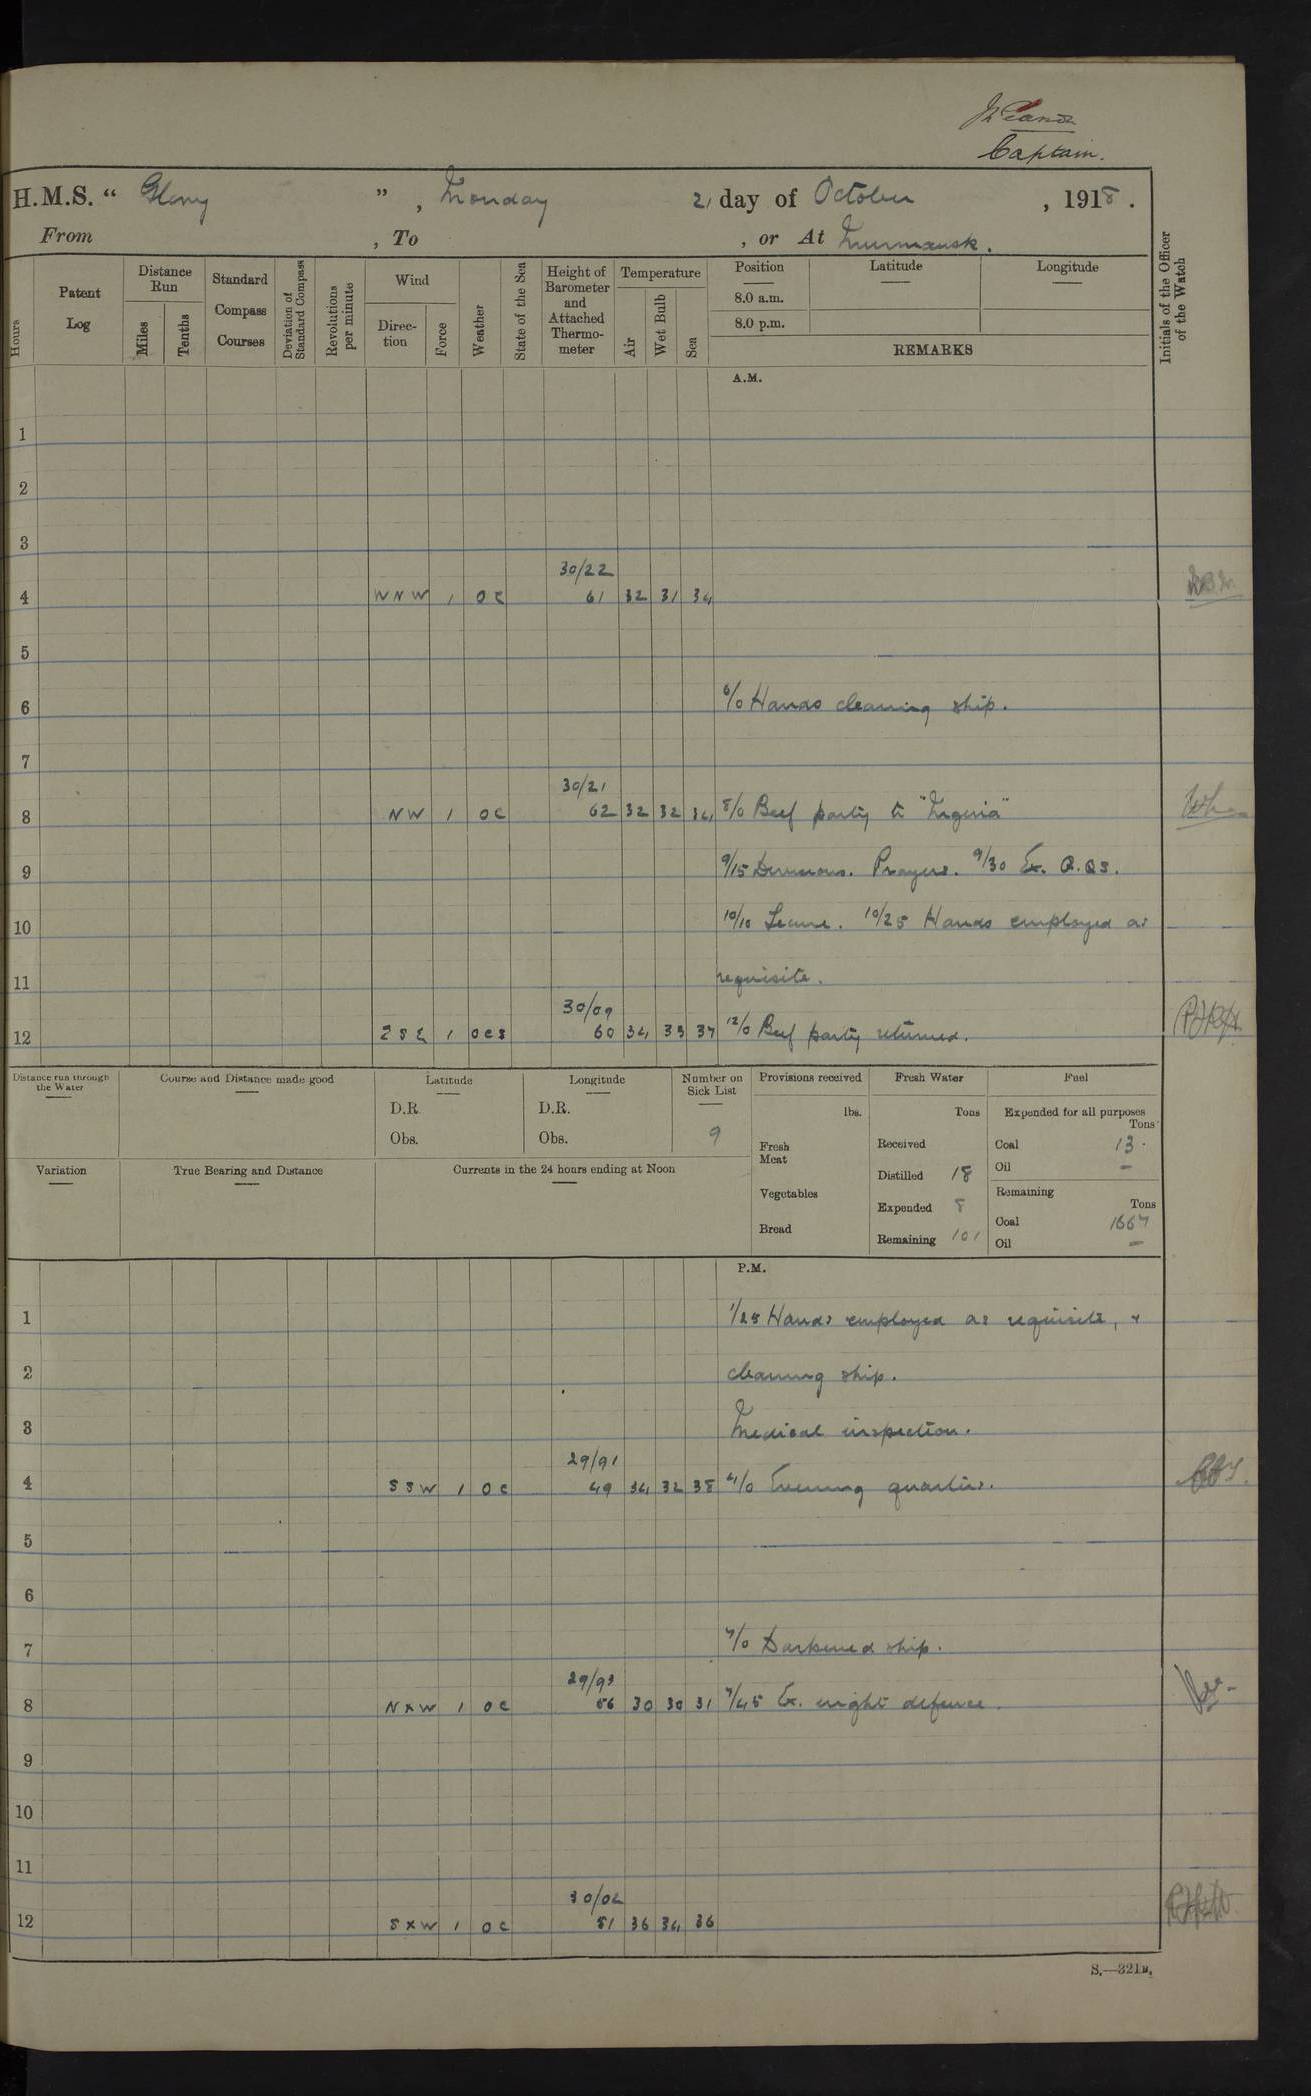 Captain.
H.M.S. “ Glory ”, Monday 21 day of October, 1918.
From , To , or At Murmansk.
Hours
Patent Log
Distance Run
Miles
Tenths
Standard Compass Courses
Deviation of Standard Compass
Revolutions per minute
Wind
Direction
Force
Weather
State of the Sea
Height of Barometer and Attached Thermometer
Temperature
Air
Wet Bulb
Sea
Position
8.0 a.m.
8.0 p.m.
Latitude
Longitude
REMARKS
Initials of the Officer of the Watch
A.M.
1
2
3
30/22
4 WNW 1 oc 61 32 31 34
5
6 6/0 Hands cleaning ship.
7
30/21
8 NW 1 oc 62 32 32 34 8/0 Beef party to "Nigeria"
9 9/15 Divisions. Prayers. 9/30 Ex. G.Qs.
10 10/10 Secure. 10/25 Hands employed as
11 requisite.
30/09
12 SSE 1 ocs 60 34 33 37 12/0 Beef party returned.
Distance run through the Water
Course and Distance made good
Latitude
D.R.
Obs.
Longitude
D.R.
Obs.
Number on Sick List
9
Variation
True Bearing and Distance
Currents in the 24 hours ending at Noon
Provisions received
lbs.
Fresh Meat
Vegetables
Bread
Fresh Water
Tons
Received
Distilled 18
Expended 8
Remaining 101
Fuel
Expended for all purposes
Tons
Coal 13.
Oil —
Remaining
Tons
Coal 1667
Oil —
P.M.
1 1/25 Hands employed as requisite, &
2 cleaning ship.
3 Medical inspection.
29/91
4 SSW 1 oc 49 34 32 38 4/0 Evening quarters.
5
6
7 7/0 Darkened ship.
29/93
8 NxW 1 oc 56 30 30 31 7/45 Ex. night defence.
9
10
11
30/02
12 SxW 1 oc 51 36 34 36
S.—321B.